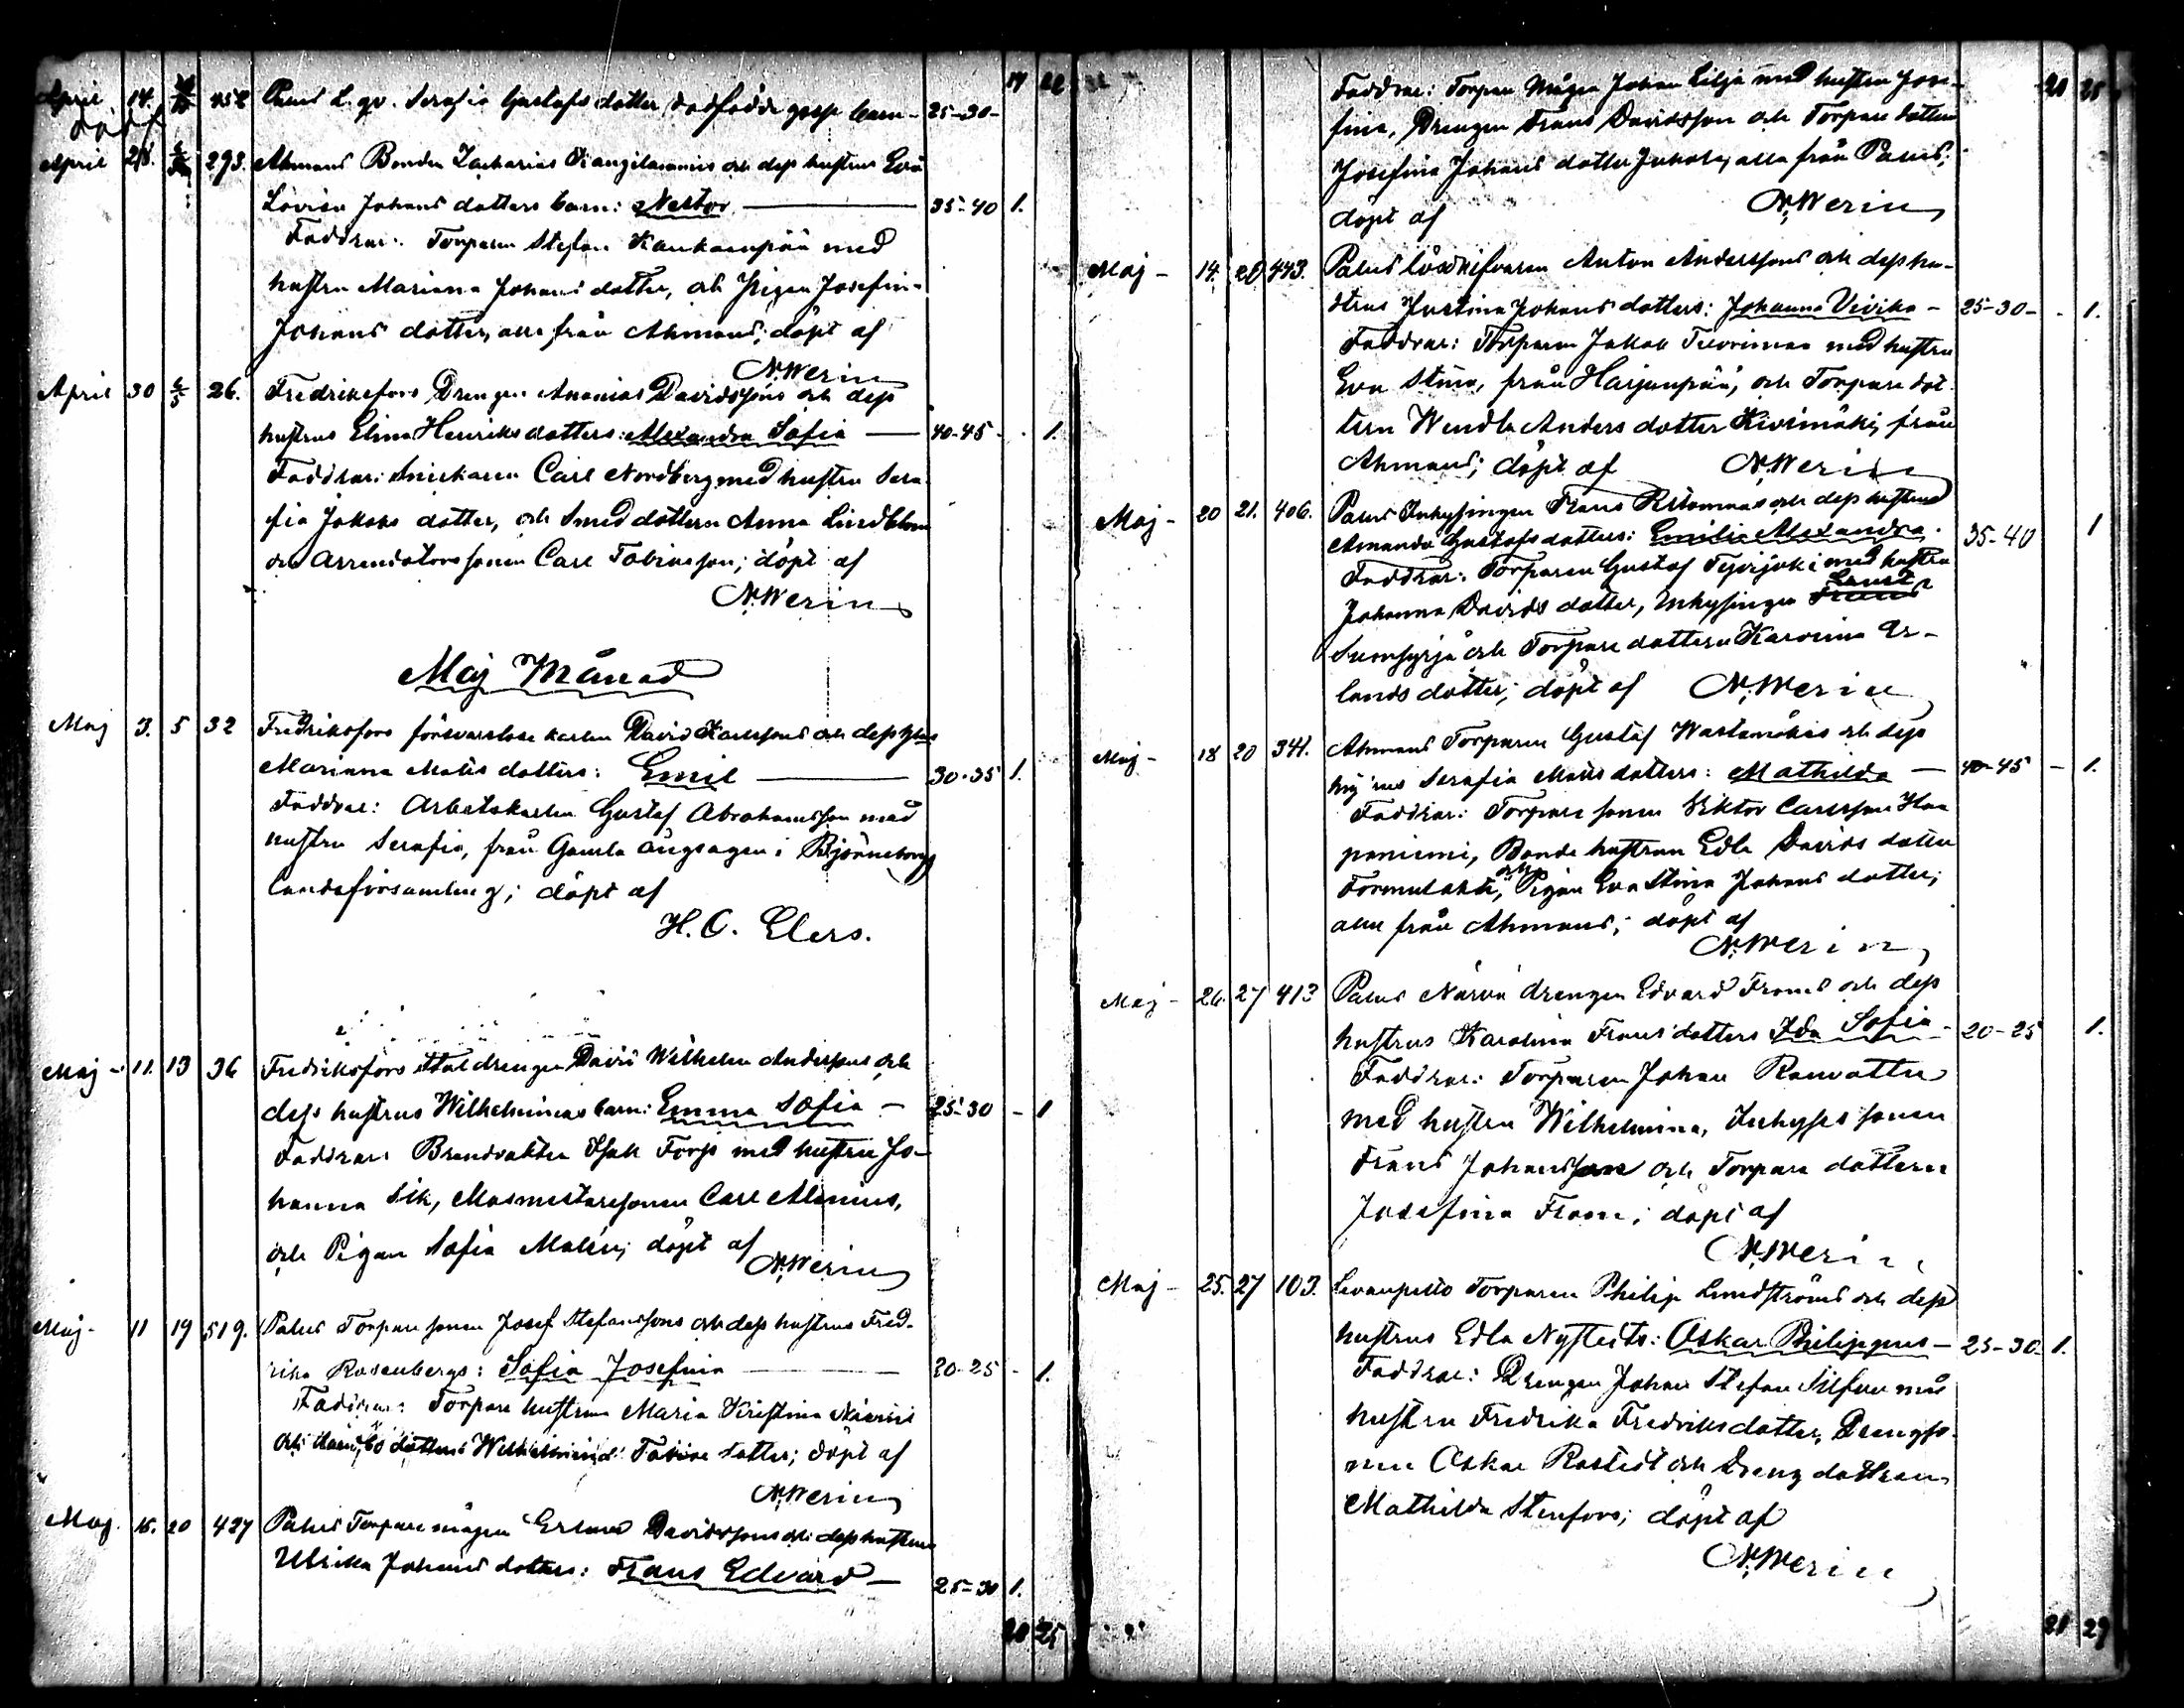 17 22
April 14. 452 Palus L. qv. Serafia Gustafsdotter dödfödde goss barn 25-30-
April 28. 293. Ahmaus Bonden Zacharias Kangilaramis och dess hustrus Eva
Lovisa Johans dotters barn: Nestor 35-40 1.
Faddrar: Torparen Stefan Kankaanpää med
hustru Mariana Johans dotter, och Pigan Josefina
Johans dotter, alla från Ahmaus; döpt af
N. Werin
April 30 2/5 26. Fredriksfors Drengen Ananias Davidssons och dess
hustrus Elina Henriks dotters: Alexandra Sofia 40-45 - 1.
Faddrar: Snickaren Carl Nordberg med hustru Sera-
fia Jakobs dotter, och Smed dottern Anna Lindblom
och Arrendators sonen Carl Tobiasson; döpt af
N. Werin
Maj Månad
Maj 3. 5 32 Fredriksfors försvarslöse karlen David Karlssons och dess hus
Mariana Matts dotters: Emil 30-35 1.
Faddrar: Arbetskarlen Gustaf Abrahamsson med
hustru Serafia, från Gamla ångsågen i Björneborgs
landsförsamling; döpt af
H. C. Elers.
Maj - 11. 13 36 Fredriksfors Stal drengen David Wilhelm Anderssons och
dess hustrus Wilhelminas barn: Emma Sofia - 25-30 - 1
Faddrar: Brandvakten Isak Forss med hustru Jo-
hanna Silk, Masmestaresonen Carl Alenius,
och Pigan Sofia Malén; döpt af
N. Werin
Maj - 11 19 519. Palus Torpare sonen Josef Stefanssons och dess hustrus Fred-
rika Rosenbergs: Sofia Josefina 20-25 - 1.
Faddrar: Torpare hustrun Maria Kristina
och dottern Wilhelmina dotter; döpt af
N. Werin
Maj 15. 20 427 Palus Torpare mågen Davidssons och dess hustrus
Ulrika Johans dotters: Frans Edvard - 25-30 1.
20 25
20 25
Faddrar: Torpare Mågen Johan Lilja med hustru Jose-
fina, Drengen Frans Davidsson och Torpare dottern
Josefina Johans dotter alla från Palus;
döpt af N. Werin
Maj - 14. 20 443. Palus lösdrifvaren Anton Anderssons och dess hu-
strus Justina Johans dotters: Johanna Vivika - 25-30 - - 1.
Faddrar: Torparen Jakob Tuorimaa med hustru
Eva Stina, från Harjanpää, och Torpare dot-
tern Wendla Anders dotter Kivimäki, från
Ahmaus; döpt af N. Werin
Maj - 20 21. 406. Palus Inhysingen Frans och dess hustrus
Amanda Gustafs dotters: Emilia Alexandra. 35-40 1
Faddrar: Torparen Gustaf med hustru
Johanna Davids dotter, Inhysingen Ernst
och Torpare dottern Karolina Er-
lands dotter; döpt af N. Werin
Maj - 18 20 341. Ahmaus Torparen Gustaf Wastamäkis och dess
hustrus Serafia Matts dotters: Mathilda - 40-45 - 1.
Faddrar: Torpare sonen Viktor Carlsson Haa
paniemi, Bonde hustrun Edla Davids dotter
Formulahti, och Pigan Eva Stina Johans dotter;
alla från Ahmaus; döpt af
N. Werin
Maj - 26. 27 413 Palus Närvä drengen Edvard Froms och dess
hustrus Karolina Frans dotters Ida Sofia - 20-25 1.
Faddrar: Torparen Johan
med hustru Wilhelmina, Inhyses sonen
Frans Johansson och Torpare dottern
Josefina From; döpt af
N. Werin
Maj - 25. 27 103. Levanpelto Torparen Philip Lundströms och dess
hustrus Edla Nystedts: Oskar Philippus - 25-30- 1.
Faddrar: Drengen Johan Stefan Silfver med
hustru Fredrika Fredriks dotter, Drengso-
nen Oskar Rostedt och Dreng dottren
Mathilda Stenfors; döpt af
N. Werin
21 29